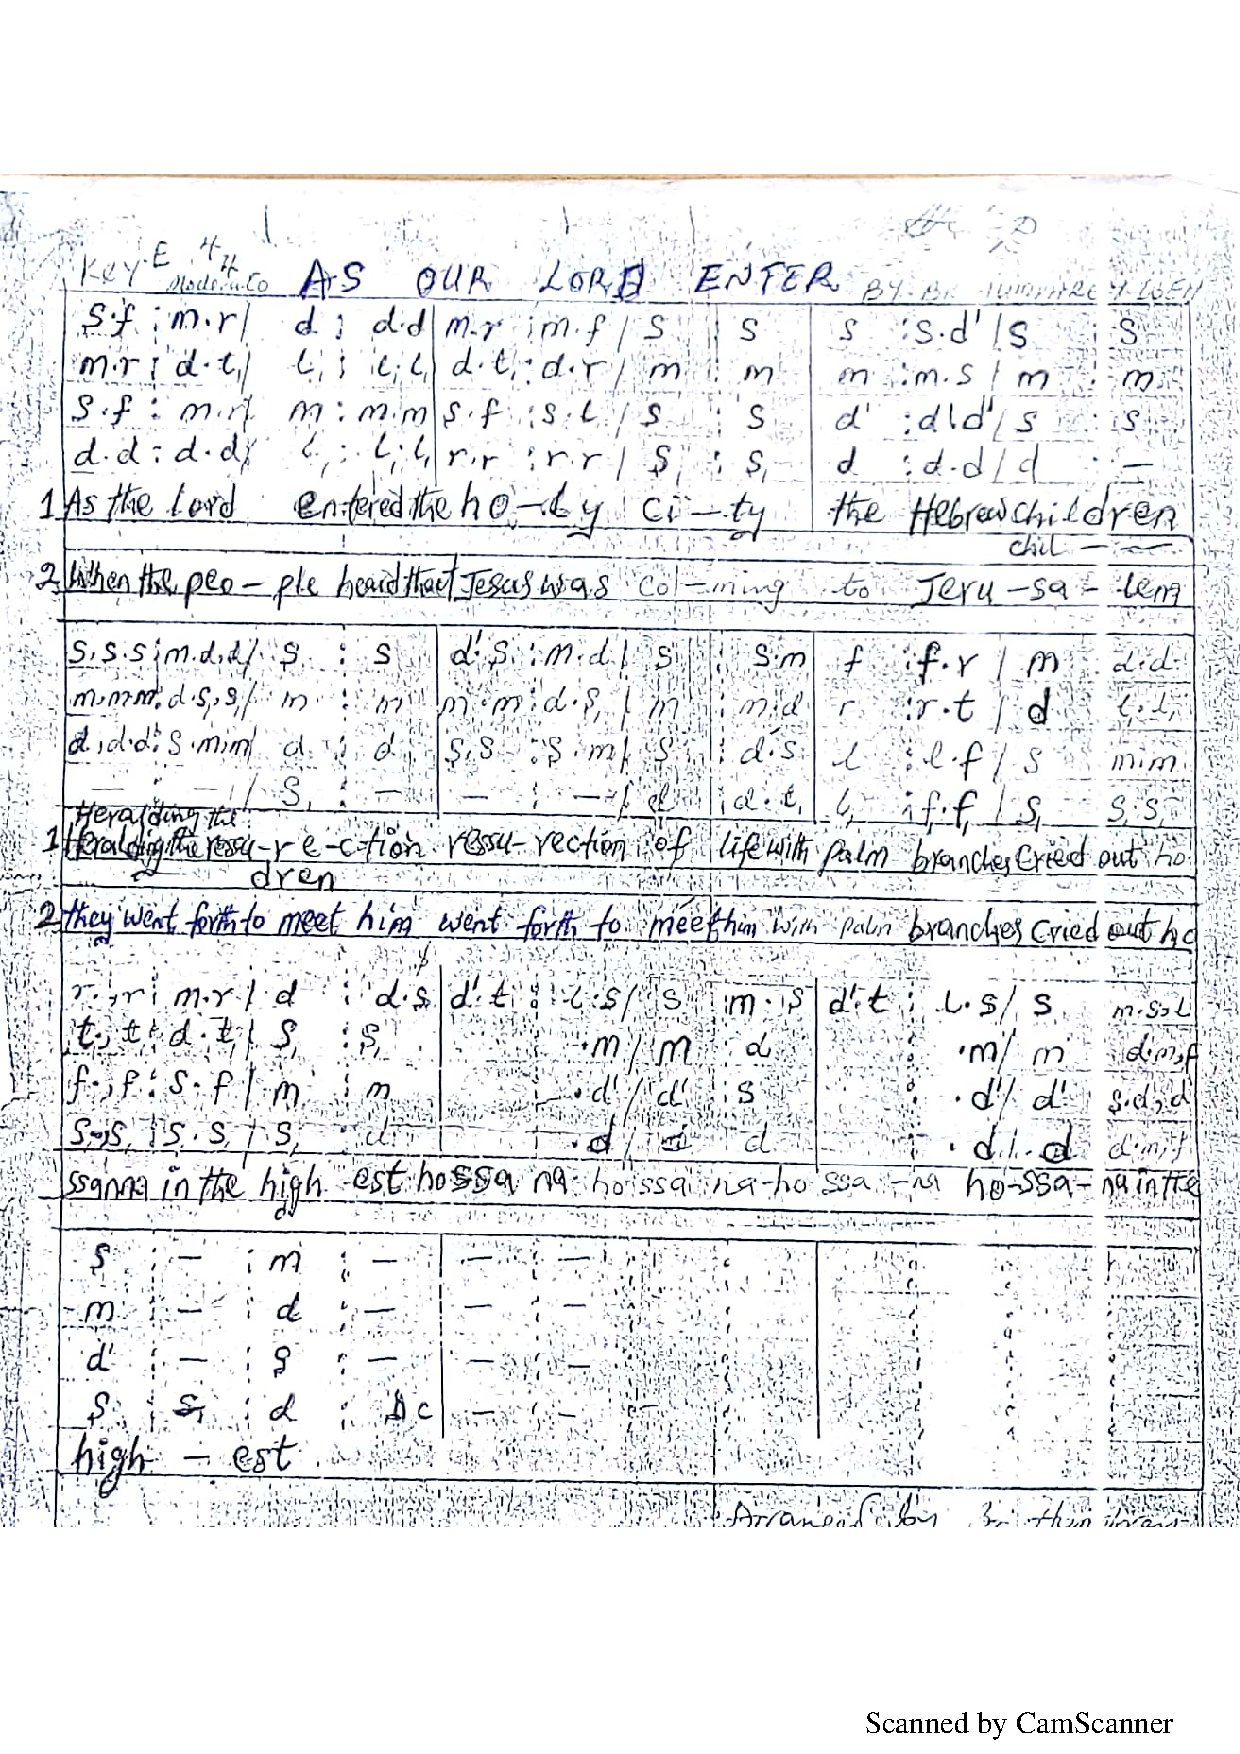 KEY E 4/4
Moderato AS OUR LORD ENTER BY BR
s.f : m.r / d : d.d m.r : m.f / s : s s : s.d' / s : s
m.r : d.t, / l, : l,.l, d.t, : d.r / m : m m : m.s / m : m
s.f : m.r / m : m.m s.f : s.l / s : s d' : d'.d' / s : s
d.d : d.d / l, : l,.l, r.r : r.r / s, : s, d : d.d / d : —
1 As the Lord entered the ho-ly Ci-ty the Hebrew children
chil —
2 When the peo-ple heard that Jesus was co-ming to Jeru-sa-lem
s.s.s : m.d.d / s : s d'.s : m.d / s : s.m f : f.r / m d.d
m.m.m : d.s,.s, / m : m m.m : d.s, / m : m.d r : r.t / d l,.l,
d.d.d : s.m.m / d : d s.s : s.m / s : d.s l : l.f / s m.m
— — / s, : — — : — / d : d.t, l, : f,.f, / s, s,.s,
Heralding the
1 Heralding the ressu-re-ction ressu-rection of life with palm branches Cried out ho
dren
2 they went forth to meet him went forth to meet him with palm branches Cried out ho
r.,r : m.r / d : d.s d'.t : l.s / s m.s d'.t : l.s / s m.s,l
t,.,t, : d.t, / s, : s, .m / m d .m / m d.m,f
f.,f : s.f / m : m .d' / d' : s .d' / d' s.d,d
s,.,s, : s,.s, / s, : d .d / d d .d / d d.m,f
ssanna in the high est hossa na hossa na-ho ssa-na ho-ssa-na in the
s : — : m : — — : —
m : — : d : — — : —
d' : — : s : — — : —
s : s, : d : DC — : —
high — est
Arranged by Br
Scanned by CamScanner